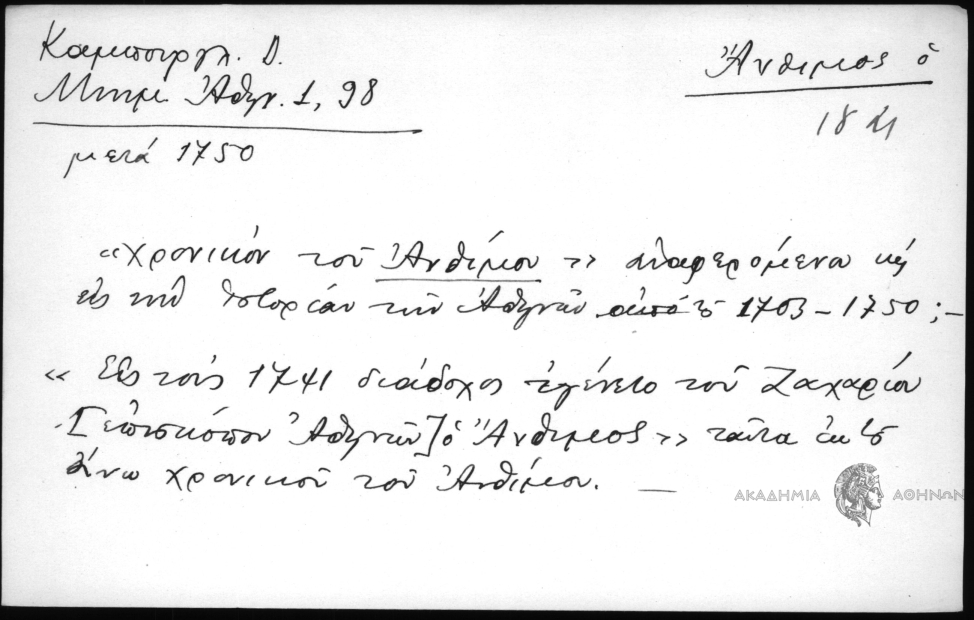 Καμπουργλ. Δ.
Μνημ. Ἀθην. 1, 98
μετά 1750
Ἄνθιμος ὁ
18
«Χρονικόν τοῦ Ἀνθίμου» ἀναφερόμενα
εἰς τὴν ἱστορίαν τῶν Ἀθηνῶν ἀπό 1703 – 1750 ; –
« Εἰς τούς 1741 διάδοχος ἐγένετο τοῦ Ζαχαρίου
[ἐπισκόπου Ἀθηνῶν] ὁ Ἄνθιμος» ταῦτα ἐκ
ἄνω χρονικοῦ τοῦ Ἀνθίμου. —
ΑΚΑΔΗΜΙΑ ΑΘΗΝΩΝ